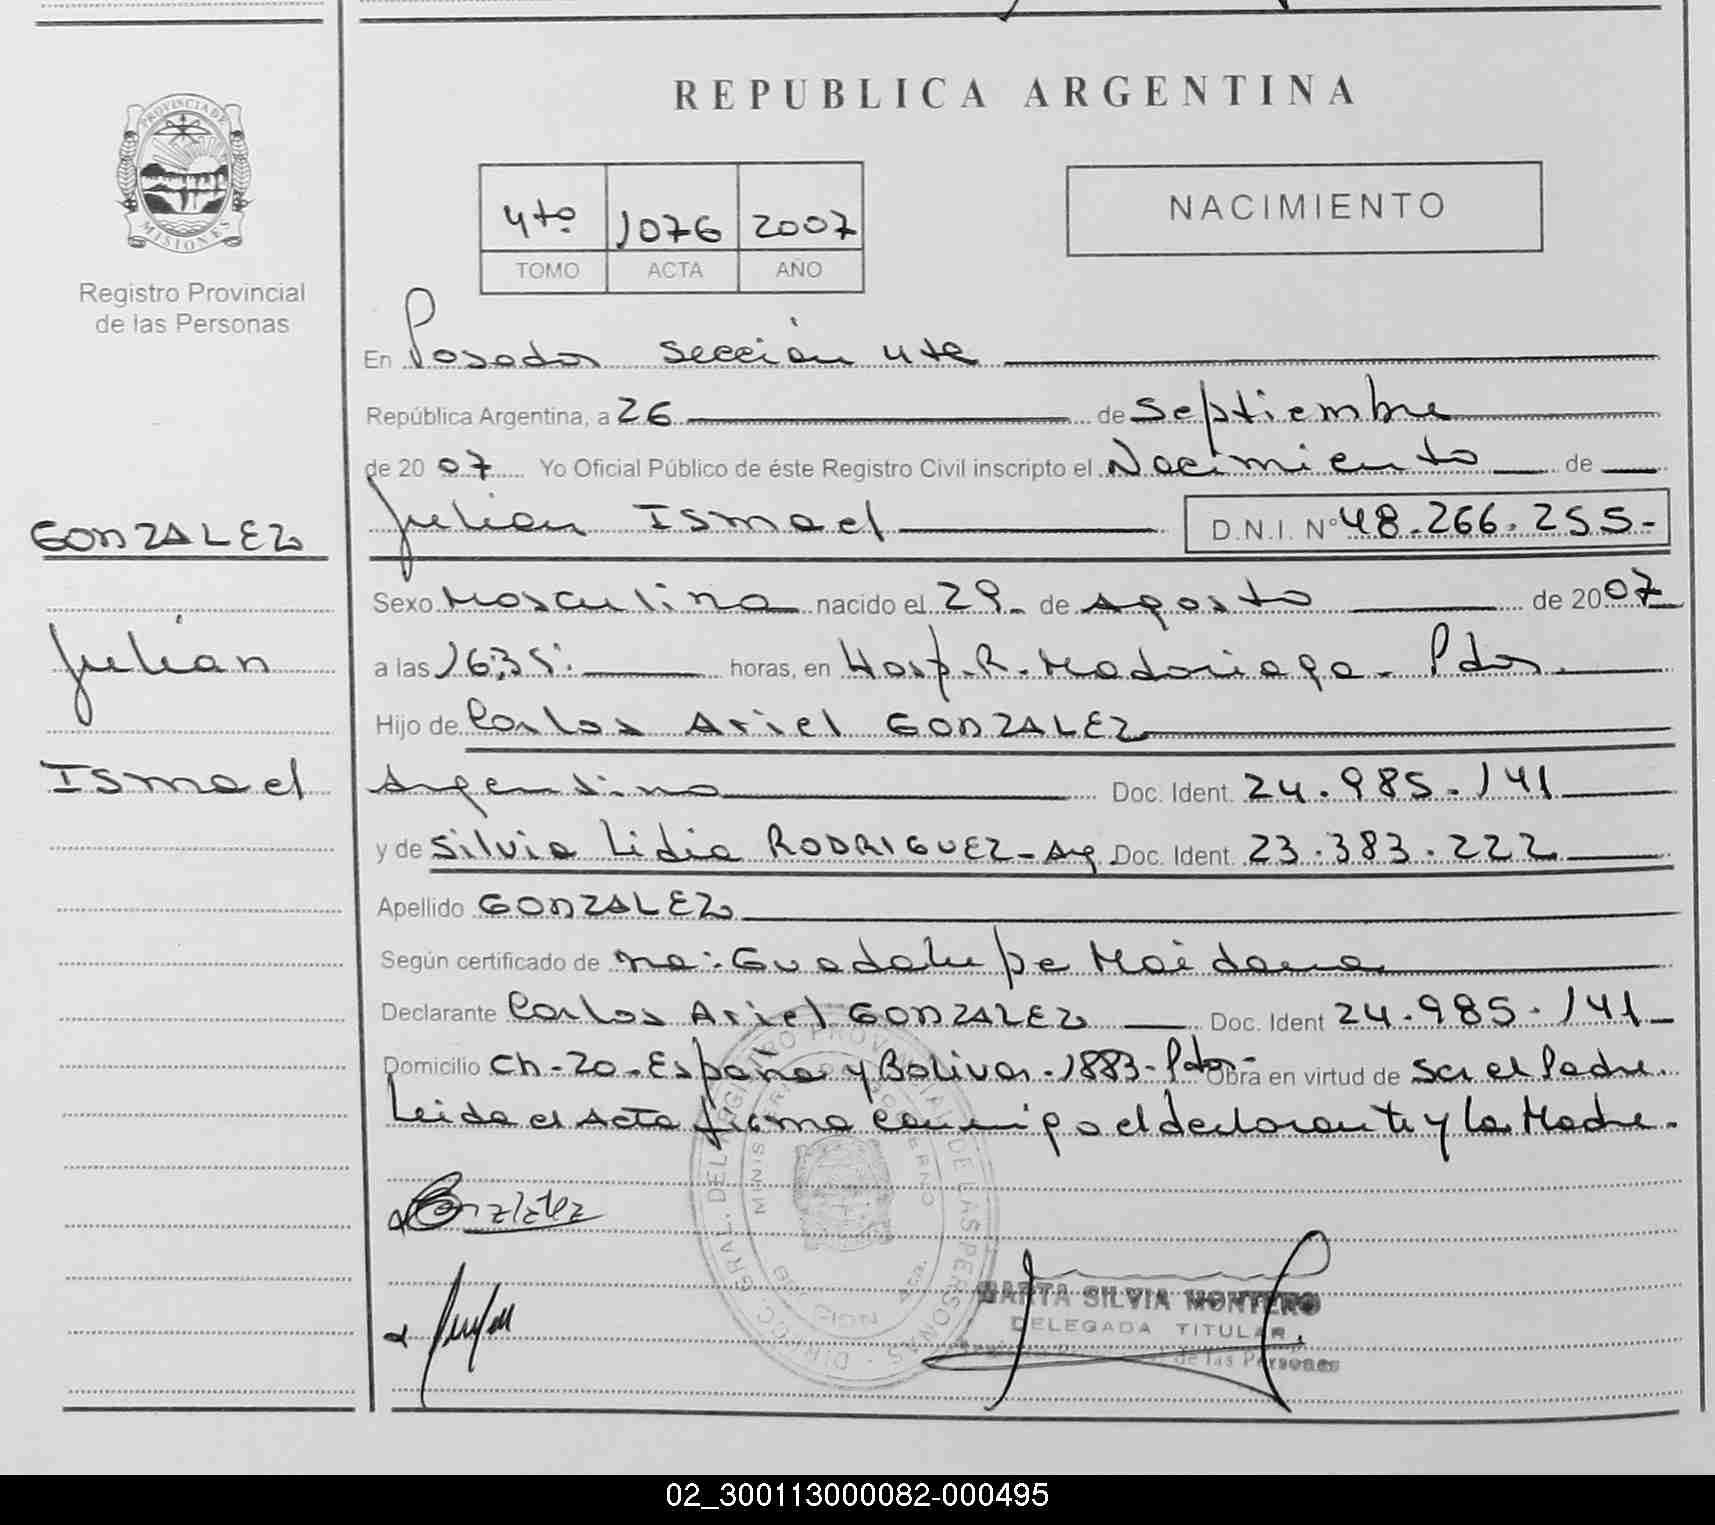 REPUBLICA ARGENTINA
PROVINCIA DE
MISIONES
Registro Provincial
de las Personas
4to. 1076 2007
TOMO ACTA AÑO
NACIMIENTO
En Posadas sección 4ta
República Argentina, a 26 de Septiembre
de 2007 Yo Oficial Público de éste Registro Civil inscripto el Nacimiento de
GONZALEZ
Julián Ismael D.N.I. Nº 48.266.255-
Sexo Masculino nacido el 29 de Agosto de 2007
Julián
a las 16:35. horas, en Hosp. R. Madariaga - Pdas.
Hijo de Carlos Ariel GONZALEZ
Ismael
Argentino Doc. Ident. 24.985.141
y de Silvia Lidia RODRIGUEZ - Arg. Doc. Ident. 23.383.222
Apellido GONZALEZ
Según certificado de na: Guadalupe Maidana
Declarante Carlos Ariel GONZALEZ Doc. Ident 24.985.141
Domicilio Ch-20-España y Bolivar-1883-Pdas- Obra en virtud de ser el Padre.
Leida el Acta firma conmigo el declarante y la Madre.
Gonzalez
MARTA SILVIA MONTERO
DELEGADA TITULAR
de las Personas
02_300113000082-000495